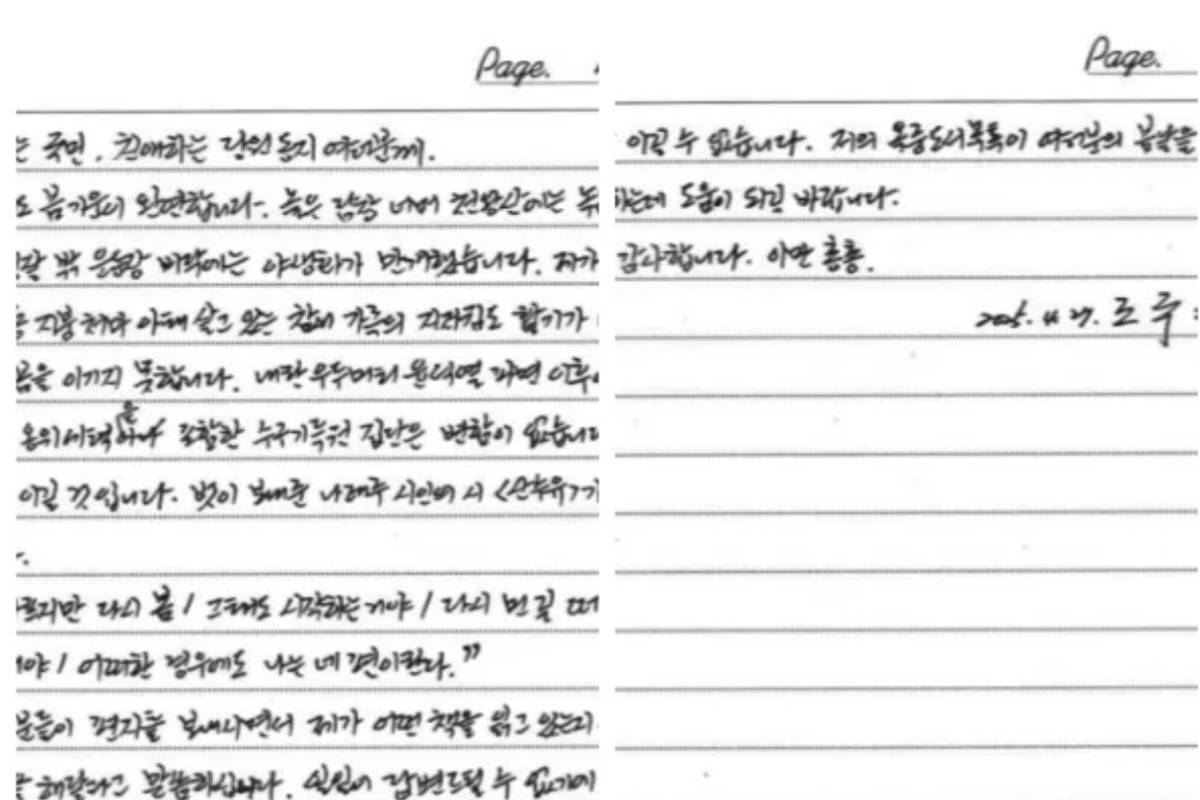 Page.
는 국민, 친애하는 당원 동지 여러분께.
도 봄기운이 완연합니다. 높은 담장 너머 천왕산에는
밖 운동장 바닥에는 야생화가 만개했습니다. 제가
지붕 처마 아래 살고 있는 참새 가족의 지저귐도 활기가
봄을 이기지 못합니다. 내란 우두머리 윤석열 파면 이후
을
포함한 수구기득권 집단은 변함이 없습니다
이길 것입니다. 벗이 보내준 나태주 시인의 시 <산수유>가
다시 봄 / 그래도 시작하는 거야 / 다시 먼 길 떠
거야 / 어떠한 경우에도 나는 네 편이란다."
분들이 편지를 보내시면서 제가 어떤 책을 읽고 있는지
해달라고 말씀하십니다. 일일이 답변드릴 수 없기에
Page.
이길 수 없습니다. 저의 옥중도서목록이 여러분의 봄날을
하는데 도움이 되길 바랍니다.
감사합니다. 이만 총총.
2025. 4. 27. 조 국